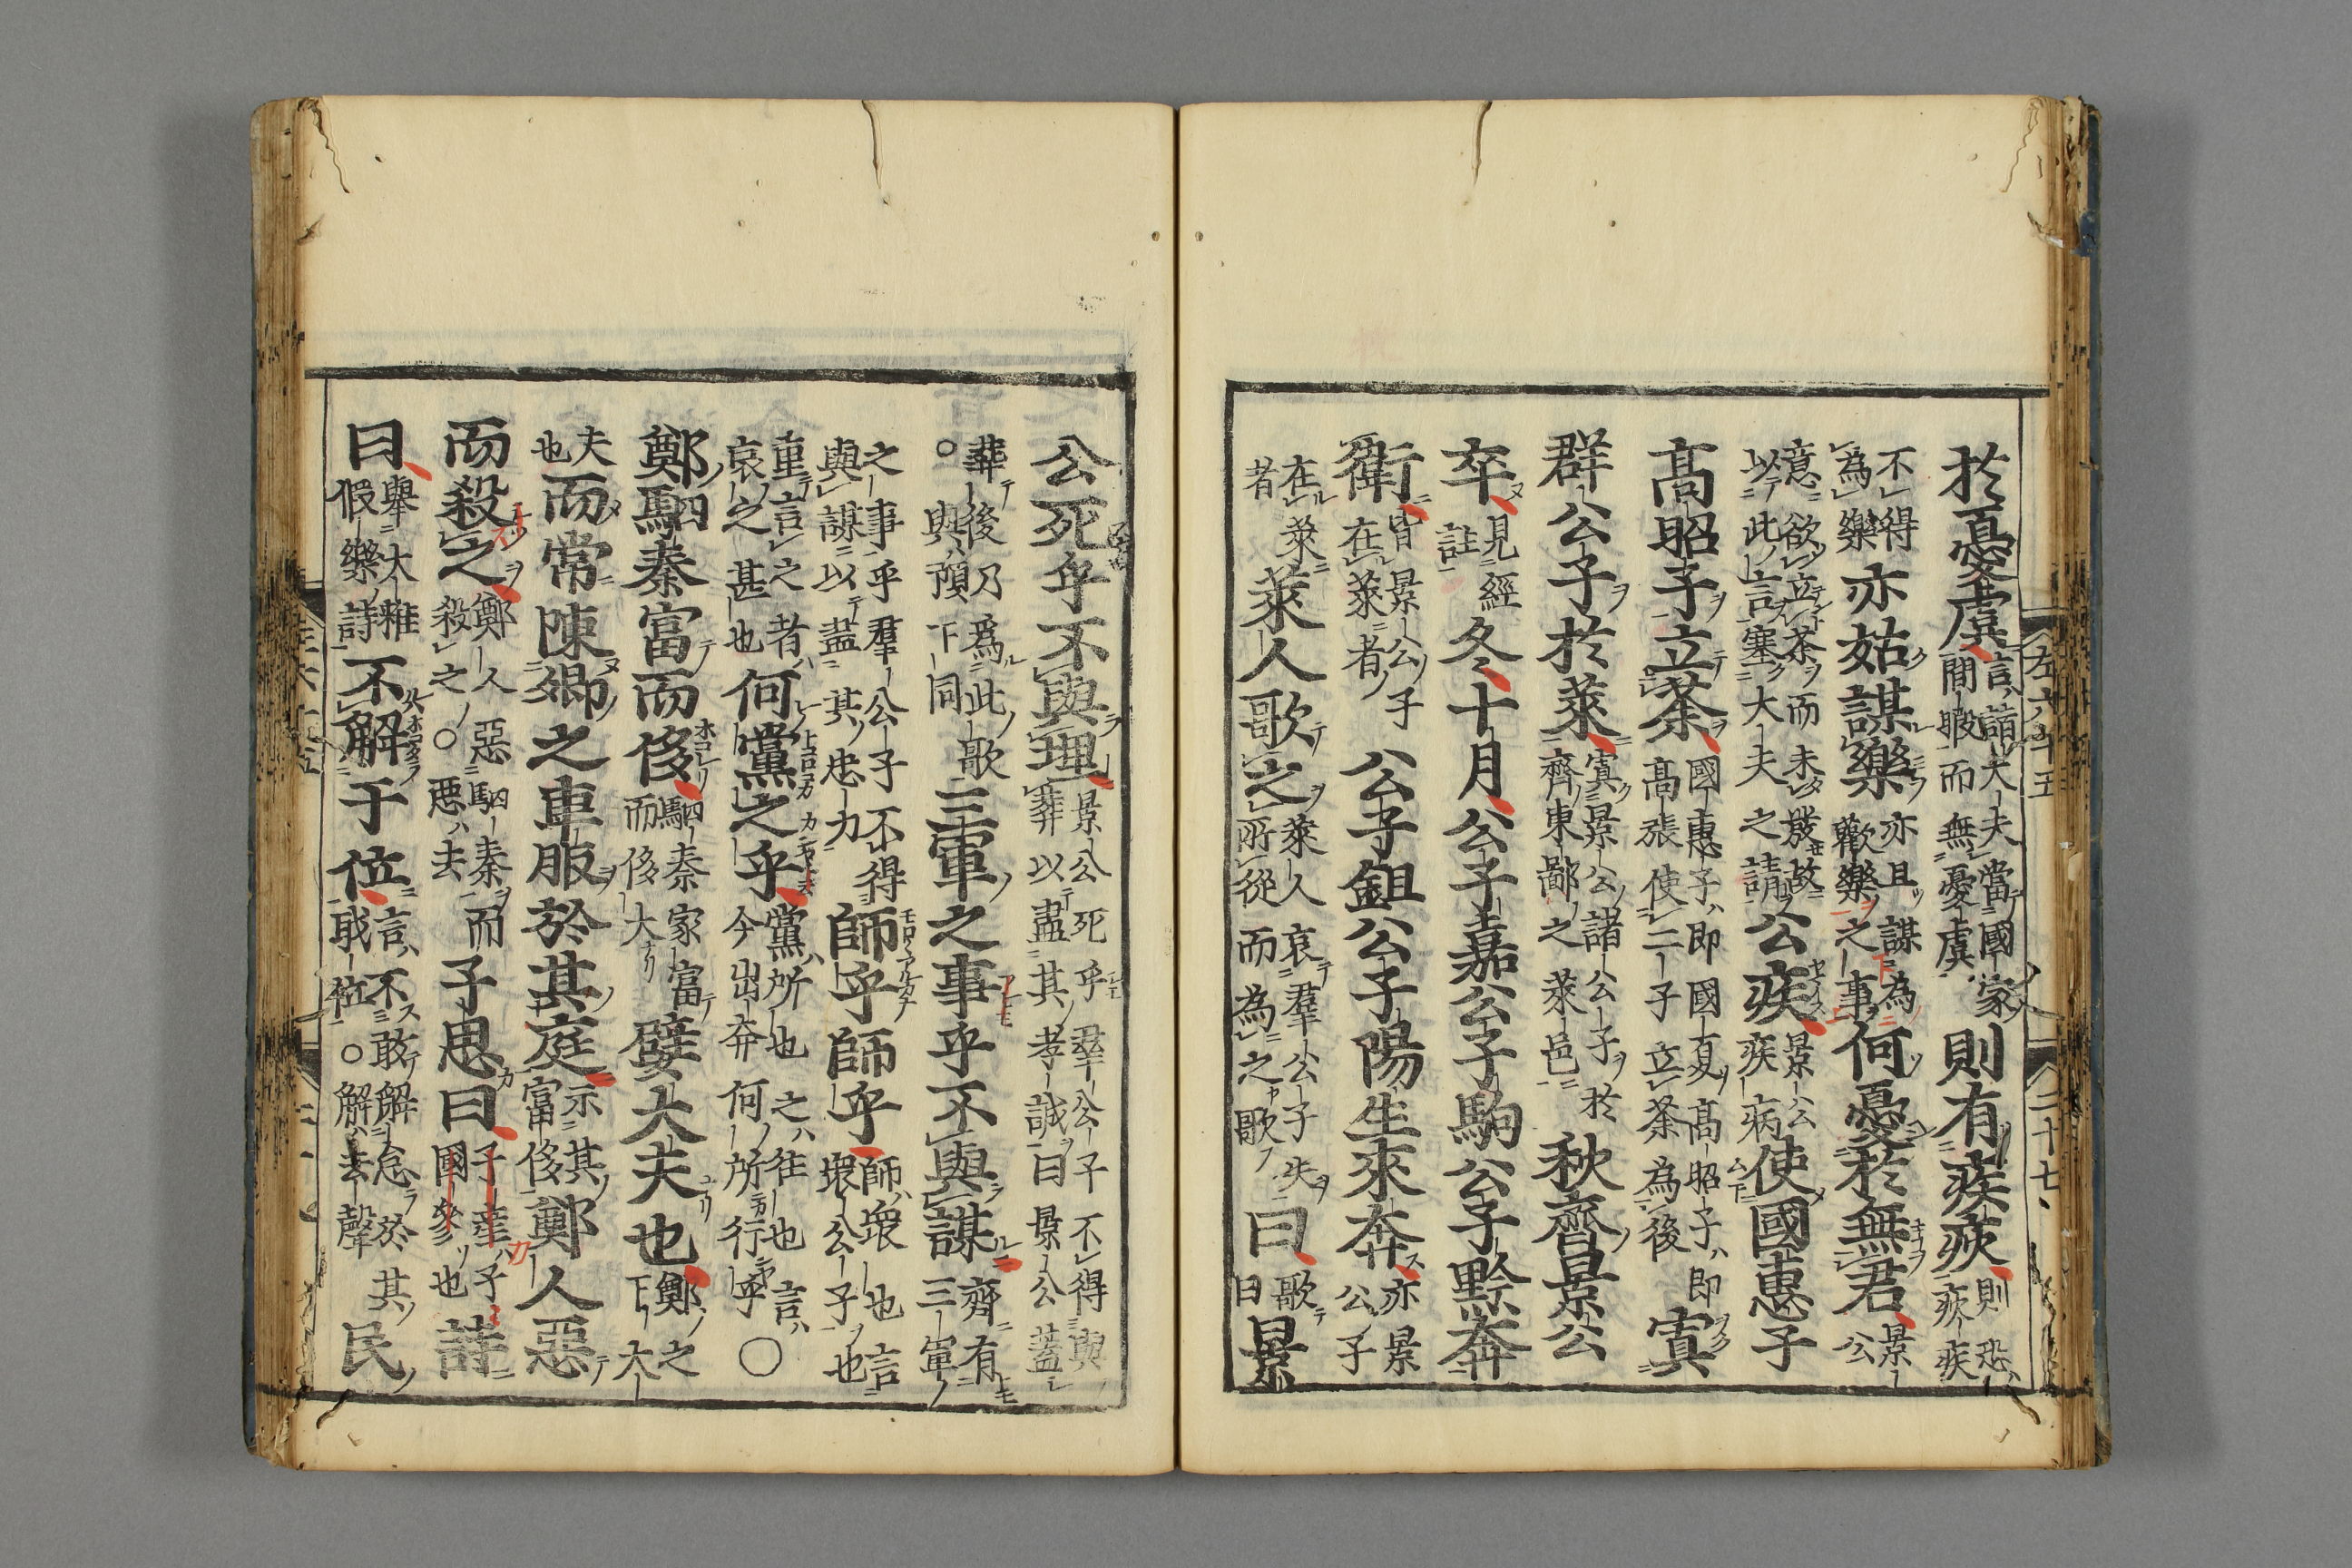 於憂虞言謂大夫當國家間暇而無憂虞則有疾疢則恐疢疾
不得為樂亦姑謀樂亦且謀為歡樂之事何憂於無君景公
意欲立荼而未發故以此言塞大夫之請公疾景公疾病使國惠子
高昭子立荼國惠子即國夏高昭子即高張使二子立荼為後寘
群公子於萊寘景公諸公子於齊東鄙之萊邑秋齊景公
卒見經註冬十月公子嘉公子駒公子黔奔
衛皆景公子在萊者公子鉏公子陽生來奔亦景公子
在萊者萊人歌之萊人哀羣公子失所從而為之歌曰歌曰景
公死乎不與埋景公死乎羣公子不得與葬以盡其孝誠曰景公蓋
葬後乃爲此歌○與預下同三軍之事乎不與謀齊有三軍
之事乎羣公子不得與謀以盡其忠力師乎師乎師衆也言衆公子也
重言之者哀之甚也何黨之乎黨所也之往也言今出奔何所行乎○
鄭駟秦富而侈駟秦家富而侈大嬖大夫也鄭之下大
夫也而常陳卿之車服於其庭示其富侈鄭人惡
而殺之鄭人惡駟秦而殺之○惡去子思曰子產子國參也詩
曰舉大雅假樂詩不解于位言不敢解怠於其職位○解去聲民
左六十五
二十七